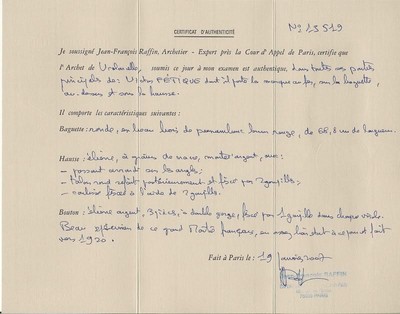 CERTIFICAT D'AUTHENTICITÉ
N° 13519
Je soussigné Jean-François Raffin, Archetier - Expert près la Cour d'Appel de Paris, certifie que
l'Archet de Violoncelle, soumis ce jour à mon examen est authentique, dans toutes ses parties
principales de: Victor FÉTIQUE dont il porte la marque au fer, sur la baguette,
au-dessus et sous la hausse.
Il comporte les caractéristiques suivantes :
Baguette: ronde, en beau bois de pernambouc brun rouge, de 68,8 cm de longueur.
Hausse: ébène, à grain de nacre, montée argent, avec:
- passant arrondi sur les angles;
- talon rond refait postérieurement et fixé par 2 goupilles;
- coulisse fixée à l'aide de 2 goupilles.
Bouton: ébène argent, 3 pièces, à double gorge, fixé par 1 goupille dans chaque virole.
Beau spécimen de ce grand Maître français, en assez bon état à ce jour et fait
vers 1920.
Fait à Paris le: 19 janvier 2007
RAFFIN